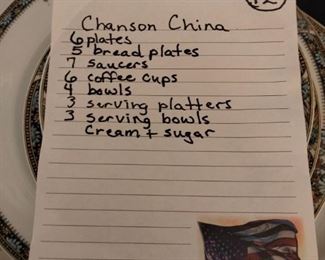 Chanson China
6 plates
5 bread plates
7 saucers
6 coffee cups
4 bowls
3 serving platters
3 serving bowls
Cream + sugar